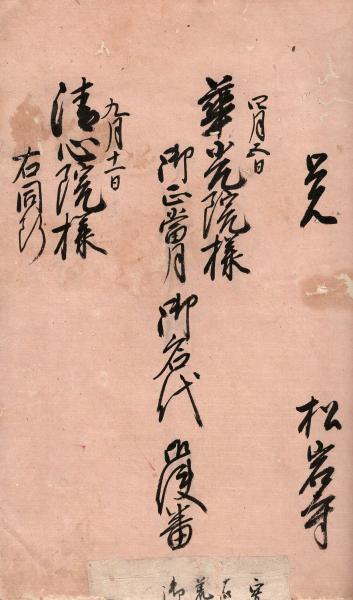 覚
松岩寺
四月五日
華光院様
御正当月御名代
番
九月十一日
清心院様
右同断